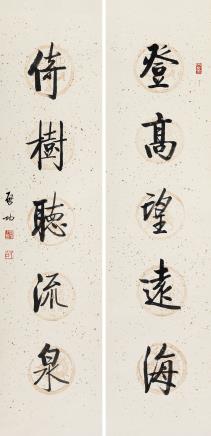 登高望遠海
倚樹聽流泉
啓功